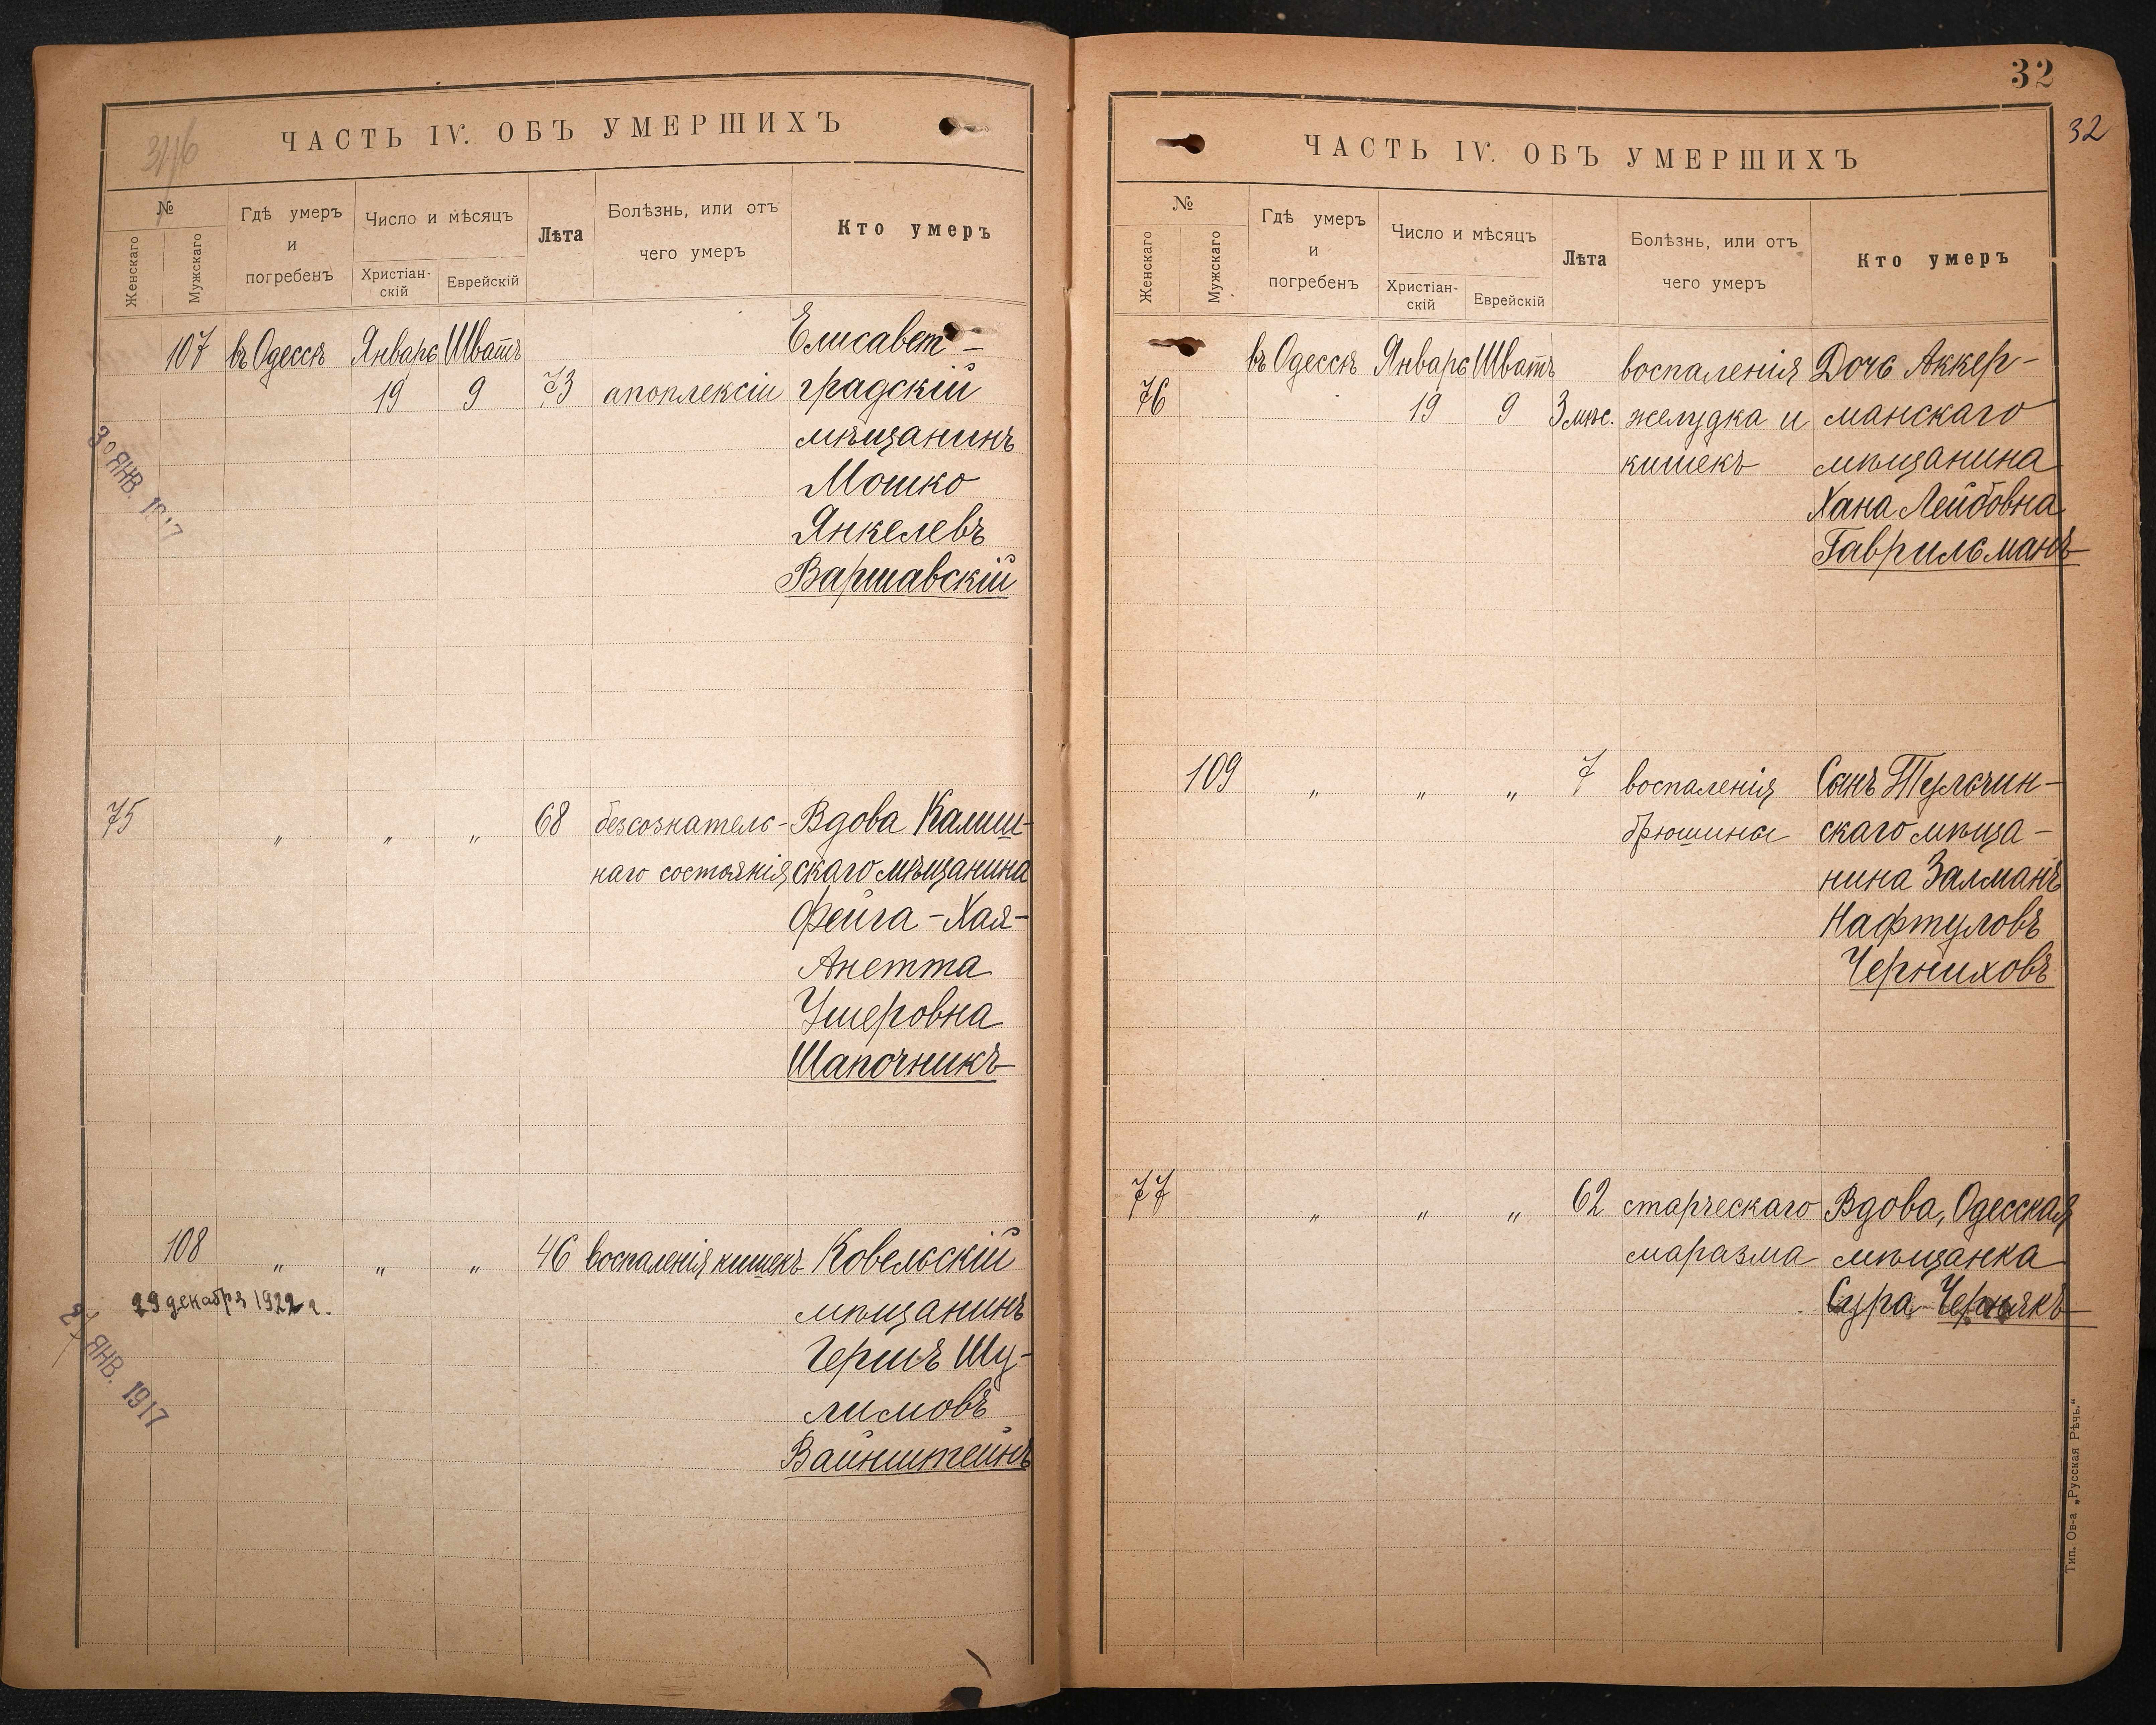 ЧАСТЬ IV. ОБЪ УМЕРШИХЪ
№
Женскаго
Мужскаго
Гдѣ умеръ
и
погребенъ
Число и мѣсяцъ
Христіан-
скій
Еврейскій
Лѣта
Болѣзнь, или отъ
чего умеръ
Кто умеръ
107 въ Одессѣ Январь Шватъ Елисавет-
19 9 73 апоплексіи градскій
мѣщанинъ
Мошко
Янкелевъ
Варшавскій
30 ЯНВ. 1917
75 " " " 68 безсознатель- Вдова Калиш-
наго состоянія скаго мѣщанина
Фейга-Хая-
Анетта
Ушеровна
Шапочникъ
108 " " " 46 воспаленія кишекъ Ковельскій
29 декабря 1922 г.
мѣщанинъ
Гершъ Шу-
лимовъ
Вайнштейнъ
27 ЯНВ. 1917
32
32
ЧАСТЬ IV. ОБЪ УМЕРШИХЪ
№
Женскаго
Мужскаго
Гдѣ умеръ
и
погребенъ
Число и мѣсяцъ
Христіан-
скій
Еврейскій
Лѣта
Болѣзнь, или отъ
чего умеръ
Кто умеръ
въ Одессѣ Январь Шватъ воспаленія Дочь Аккер-
76 19 9 3 мѣс. желудка и манскаго
кишекъ мѣщанина
Хана Лейбовна
Гаврильманъ
109 " " " 7 воспаленія Сынъ Тульчин-
брюшины скаго мѣща-
нина Залманъ
Нафтуловъ
Черниховъ
77 " " " 62 старческаго Вдова, Одесская
маразма мѣщанка
Сура Чернякъ
Тип. Ов-а „Русская Рѣчь."